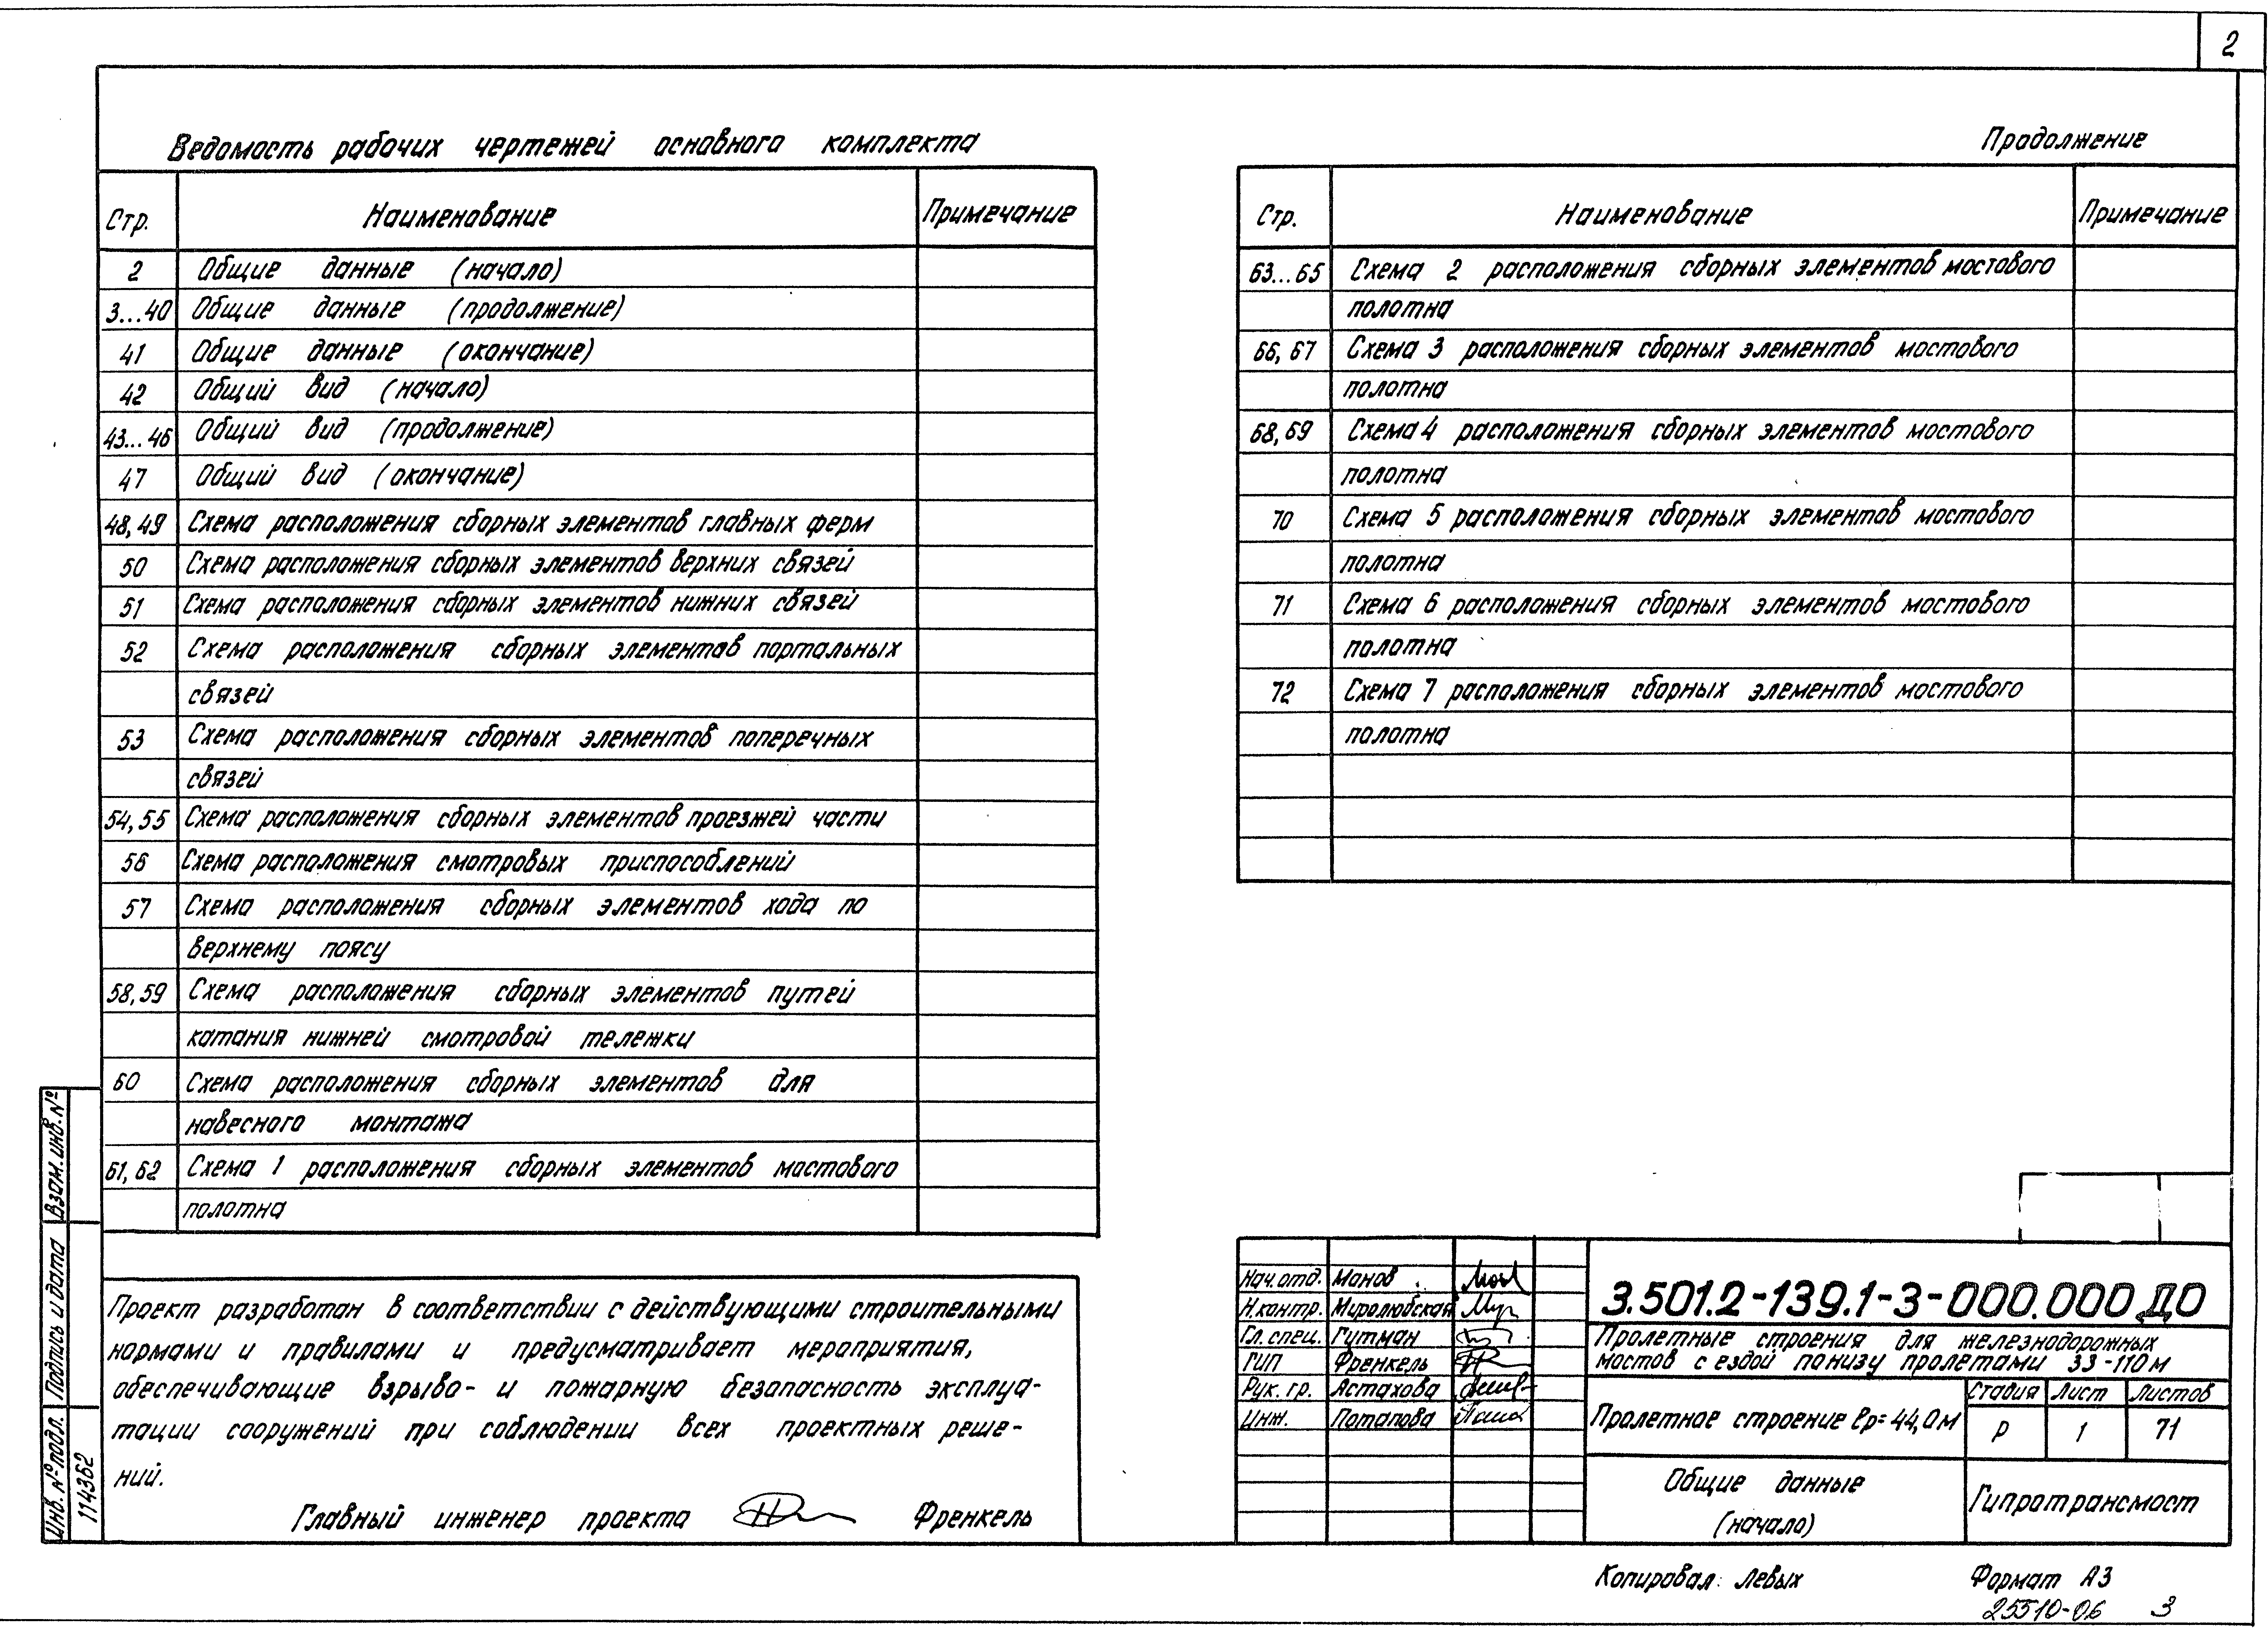 2
Ведомость рабочих чертежей основного комплекта
Стр. Наименование Примечание
2 Общие данные (начало)
3...40 Общие данные (продолжение)
41 Общие данные (окончание)
42 Общий вид (начало)
43...46 Общий вид (продолжение)
47 Общий вид (окончание)
48,49 Схема расположения сборных элементов главных ферм
50 Схема расположения сборных элементов верхних связей
51 Схема расположения сборных элементов нижних связей
52 Схема расположения сборных элементов портальных
связей
53 Схема расположения сборных элементов поперечных
связей
54,55 Схема расположения сборных элементов проезжей части
56 Схема расположения смотровых приспособлений
57 Схема расположения сборных элементов хода по
верхнему поясу
58,59 Схема расположения сборных элементов путей
катания нижней смотровой тележки
60 Схема расположения сборных элементов для
навесного монтажа
61,62 Схема 1 расположения сборных элементов мостового
полотна
Продолжение
Стр. Наименование Примечание
63...65 Схема 2 расположения сборных элементов мостового
полотна
66,67 Схема 3 расположения сборных элементов мостового
полотна
68,69 Схема 4 расположения сборных элементов мостового
полотна
70 Схема 5 расположения сборных элементов мостового
полотна
71 Схема 6 расположения сборных элементов мостового
полотна
72 Схема 7 расположения сборных элементов мостового
полотна
Проект разработан в соответствии с действующими строительными
нормами и правилами и предусматривает мероприятия,
обеспечивающие взрыво- и пожарную безопасность эксплуа-
тации сооружений при соблюдении всех проектных реше-
ний.
Главный инженер проекта Френкель
Взам. инв. №
Подпись и дата
Инв. № подл.
114362
Нач. отд. Манов
Н. контр. Миролюбская
Гл. спец. Гутман
ГИП Френкель
Рук. гр. Астахова
Инж. Потапова
3.501.2-139.1-3-000.000 ДО
Пролетные строения для железнодорожных
мостов с ездой понизу пролетами 33-110 м
Пролетное строение lр=44,0 м
Стадия Лист Листов
Р 1 71
Общие данные
(начало)
Гипротрансмост
Копировал: Левых
Формат А3
25510-06 3